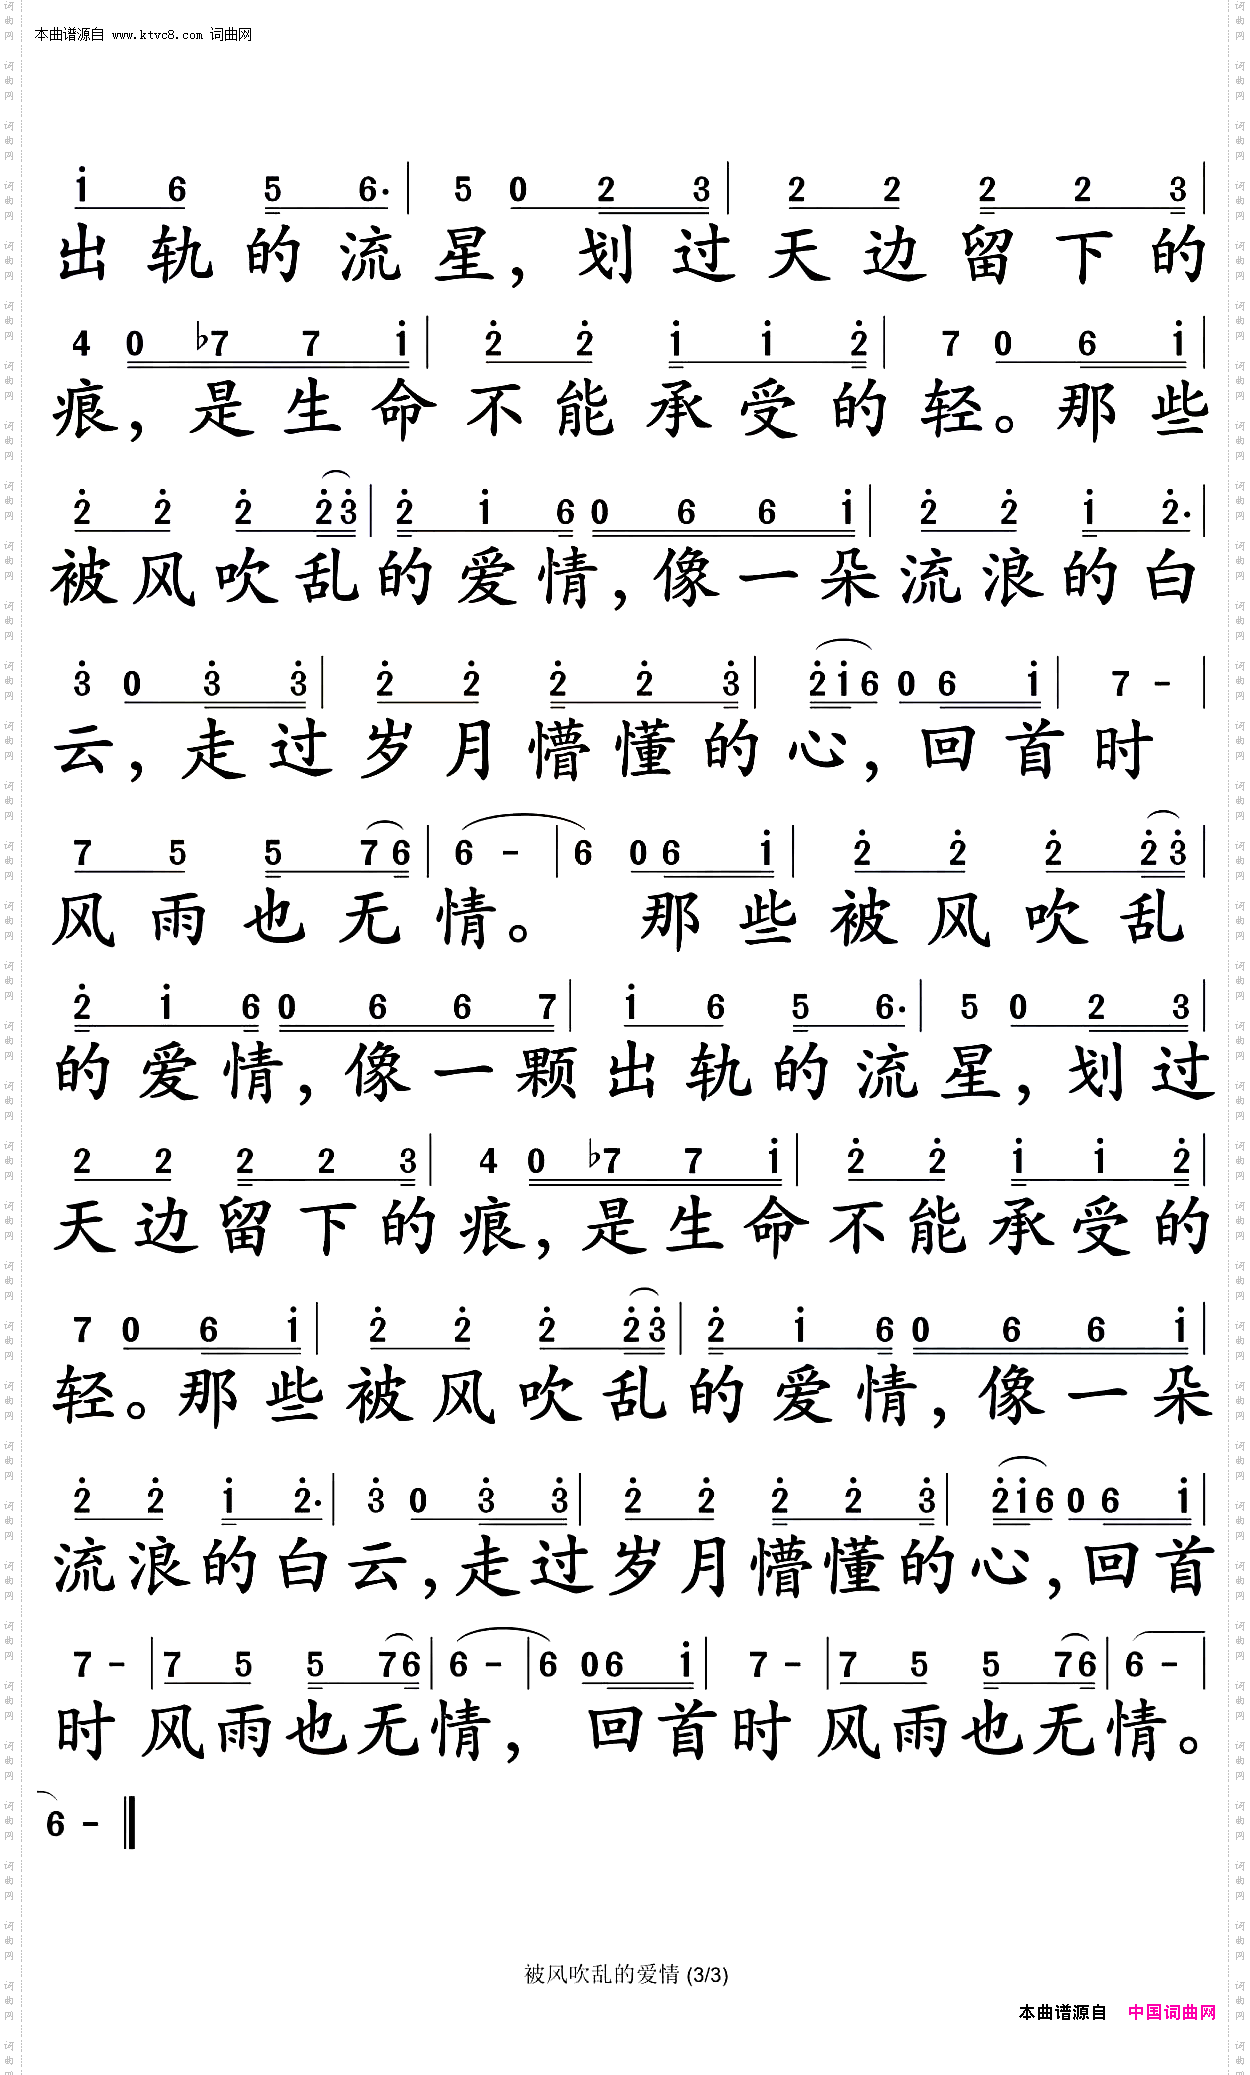 本曲谱源自 www.ktvc8.com 词曲网
1 6 5 6· | 5 0 2 3 | 2 2 2 2 3 |
出轨的流星,划过天边留下的
4 0 ♭7 7 1 | 2 2 1 1 2 | 7 0 6 1 |
痕,是生命不能承受的轻。那些
2 2 2 2 3 | 2 1 6 0 6 6 1 | 2 2 1 2· |
被风吹乱的爱情,像一朵流浪的白
3 0 3 3 | 2 2 2 2 3 | 2 1 6 0 6 1 | 7 - |
云,走过岁月懵懂的心,回首时
7 5 5 7 6 | 6 - | 6 0 6 1 | 2 2 2 2 3 |
风雨也无情。那些被风吹乱
2 1 6 0 6 6 7 | 1 6 5 6· | 5 0 2 3 |
的爱情,像一颗出轨的流星,划过
2 2 2 2 3 | 4 0 ♭7 7 1 | 2 2 1 1 2 |
天边留下的痕,是生命不能承受的
7 0 6 1 | 2 2 2 2 3 | 2 1 6 0 6 6 1 |
轻。那些被风吹乱的爱情,像一朵
2 2 1 2· | 3 0 3 3 | 2 2 2 2 3 | 2 1 6 0 6 1 |
流浪的白云,走过岁月懵懂的心,回首
7 - | 7 5 5 7 6 | 6 - | 6 0 6 1 | 7 - | 7 5 5 7 6 | 6 - |
时风雨也无情,回首时风雨也无情。
6 - ‖
被风吹乱的爱情 (3/3)
本曲谱源自 中国词曲网